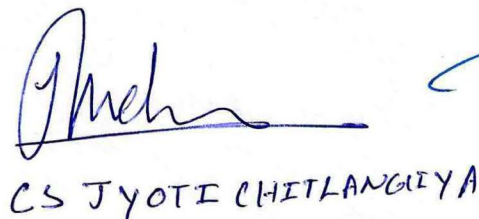 CS JYOTI CHITLANGIYA